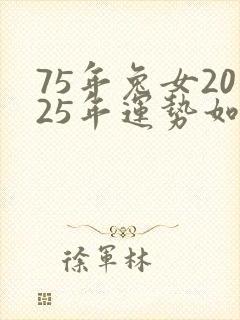 75年兔女20
25年運勢如
徐軍林